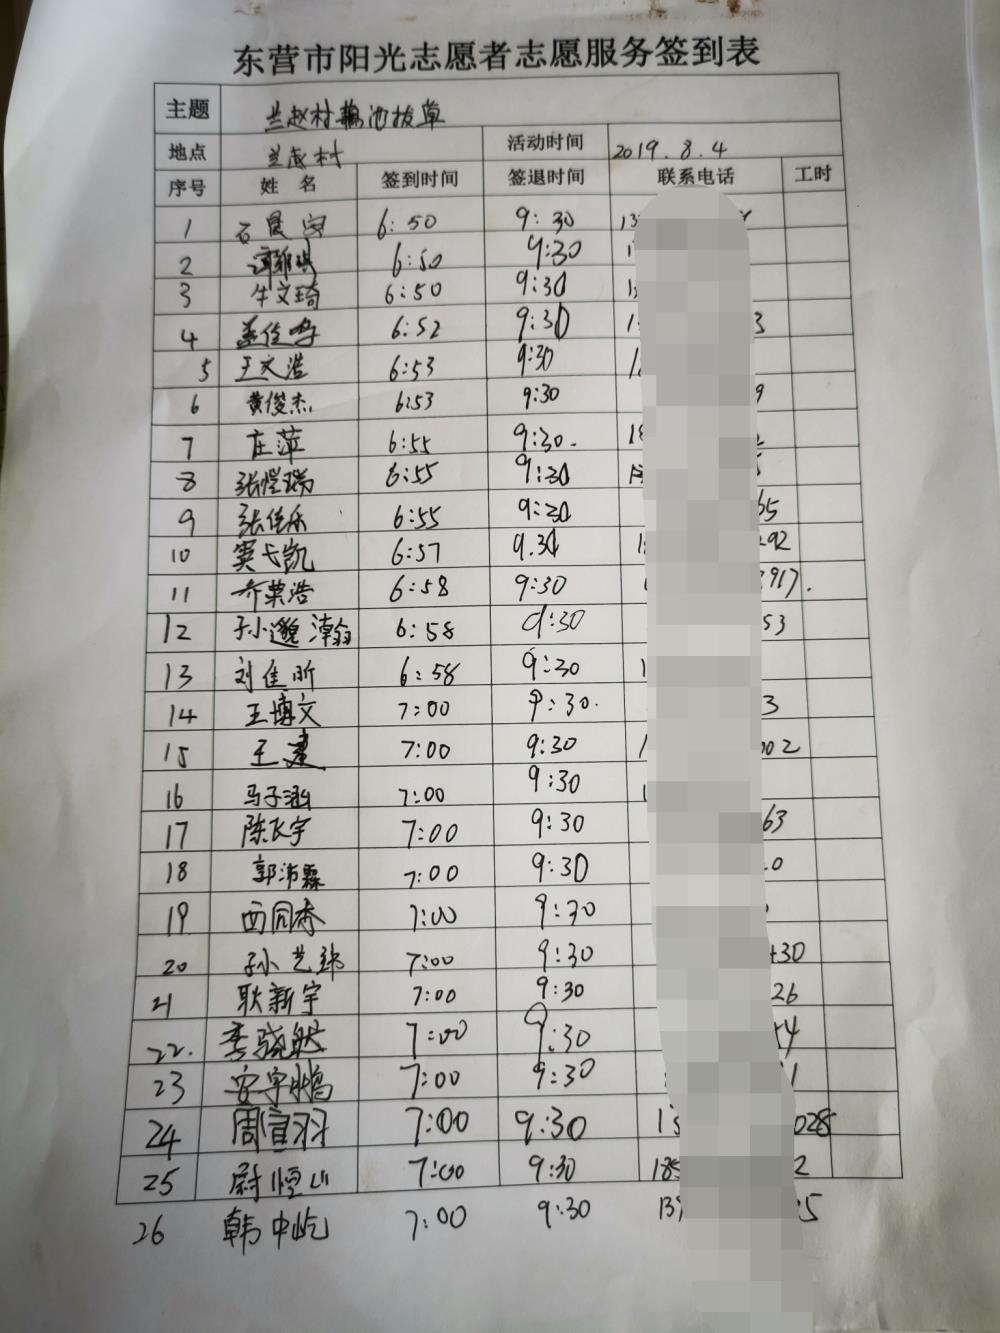 东营市阳光志愿者志愿服务签到表
主题 兰赵村藕池拔草
地点 兰赵村 活动时间 2019.8.4
序号 姓名 签到时间 签退时间 联系电话 工时
1 石晨 6:50 9:30
2 6:50 9:30
3 牛文琦 6:50 9:30
4 6:52 9:30 3
5 王文浩 6:53 9:30
6 黄俊杰 6:53 9:30 9
7 庄萍 6:55 9:30. 18
8 张恺瑞 6:55 9:30
9 张佳乐 6:55 9:30 65
10 窦弋凯 6:57 9.30 92
11 乔荣浩 6:58 9:30 917.
12 孙邈瀚 6:58 9:30 53
13 刘佳昕 6:58 9:30 1
14 王博文 7:00 9:30. 3
15 王建 7:00 9:30 1 002
16 马子涵 7:00 9:30
17 陈长宇 7:00 9:30 63
18 郭沛霖 7:00 9:30 0
19 西同春 7:00 9:30
20 孙艺 7:00 9:30 430
21 耿新宇 7:00 9:30 26
22. 李骁 7:00 9:30 4
23 安宇鹏 7:00 9:30 1
24 周宣羽 7:00 9:30 13 028
25 尉恒山 7:00 9:30 185 2
26 韩中屹 7:00 9:30 137 5